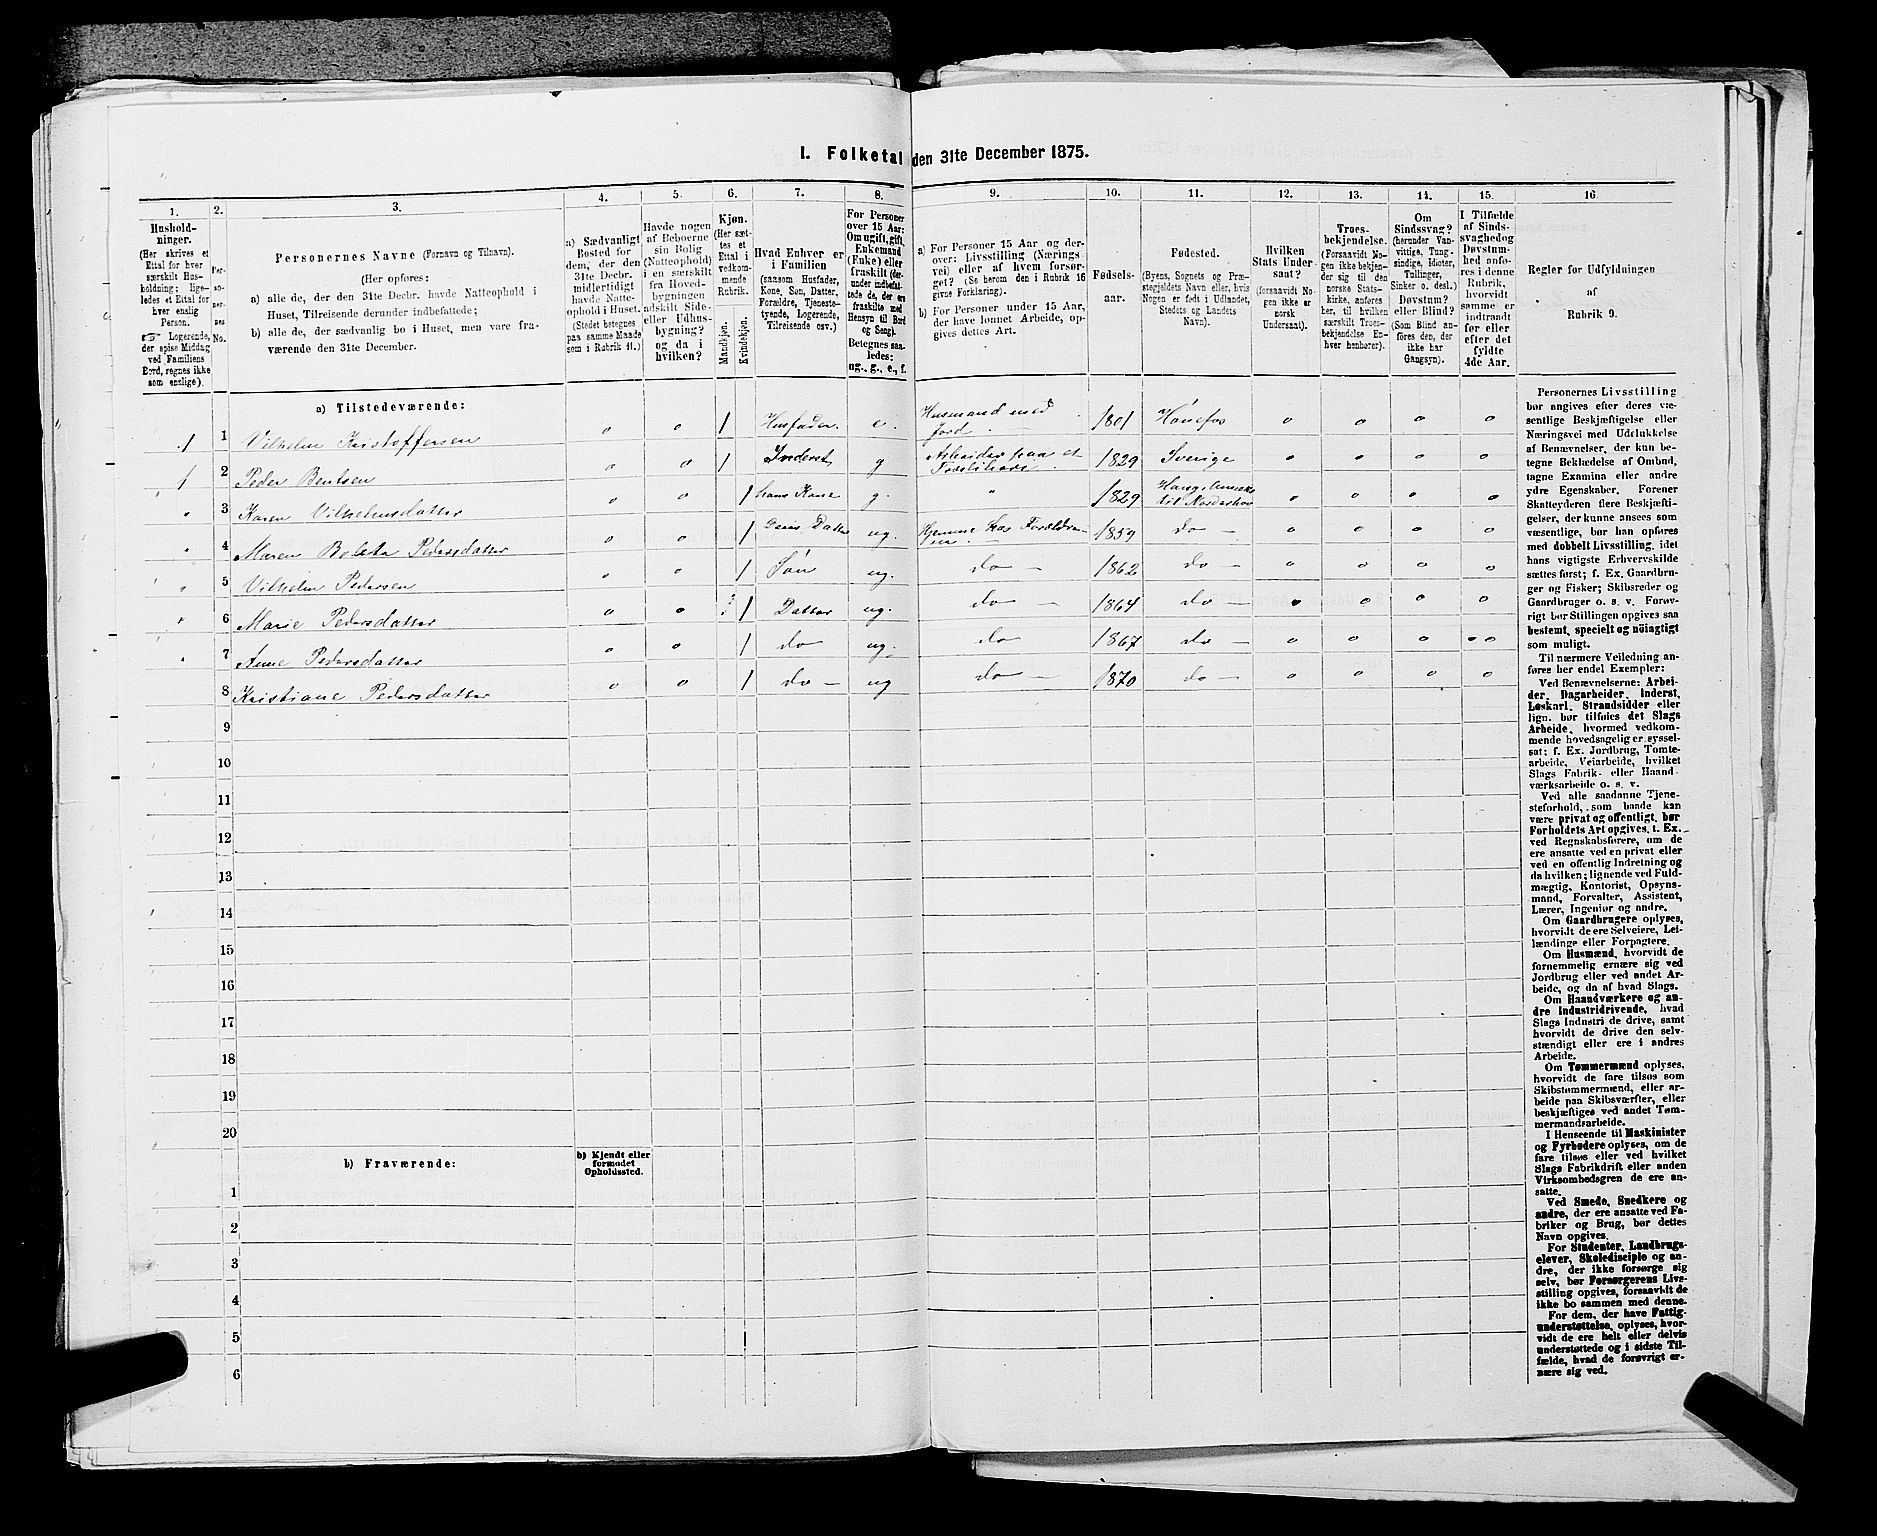 I. Folketal den 31te December 1875.
1. 2. 3. 4. 5. 6. 7. 8. 9. 10. 11. 12. 13. 14. 15. 16
Hushold-
ninger.
(Her skrives et
Ettal for hver
særskilt Hus-
holdning; lige-
ledes et Ettal for
hver enslig
Person.
☞ Logerende,
der spise Middag
ved Familiens
Bord, regnes ikke
som enslige).
Per-
so-
ner-
nes
No.
Personernes Navne (Fornavn og Tilnavn).
(Her opføres:
a) alle de, der den 31te Decbr. havde Natteophold i
Huset, Tilreisende derunder indbefattede;
b) alle de, der sædvanlig bo i Huset, men vare fra-
værende den 31te December.
a) Sædvanligt
Bosted for
dem, der den
31te Decbr.
midlertidigt
havde Natte-
ophold i Huset.
(Stedet betegnes
paa samme Maade
som i Rubrik 11.)
Havde nogen
af Beboerne
sin Bolig
(Natteophold)
i en særskilt
fra Hoved-
bygningen
adskilt Side-
eller Udhus-
bygning?
og da i
hvilken?
Kjøn.
(Her sæt-
tes et
Ettal i
vedkom-
mende
Rubrik.
Mandkjøn.
Kvindekjøn.
Hvad Enhver er
i Familien
(saasom Husfader,
Kone, Søn, Datter,
Forældre, Tjeneste-
tyende, Logerende,
Tilreisende osv.)
For Personer
over 15 Aar:
Om ugift, gift,
Enkemand
(Enke) eller
fraskilt (der-
under indbefat-
tede de, der ere
fraskilte med
Hensyn til Bord
og Seng).
Betegnes saa-
ledes:
ug., g., e., f.
a) For Personer 15 Aar og der-
over: Livsstilling (Nærings-
vei) eller af hvem forsør-
get. (Se herom den i Rubrik 16
givne Forklaring).
b) For Personer under 15 Aar,
der have lønnet Arbeide, op-
gives dettes Art.
Fødsels-
aar.
Fødested.
(Byens, Sognets og Præ-
stegjeldets Navn eller, hvis
Nogen er født i Udlandet,
Stedets og Landets
Navn).
Hvilken
Stats Under
saat?
(forsaavidt No-
gen ikke er
norsk
Undersaat).
Troes-
bekjendelse.
(Forsaavidt No-
gen ikke bekjen-
der sig til den
norske Stats-
kirke, anføres
her, til hvilken
særskilt Troes-
bekjendelse En-
hver henhører).
Om
Sindssvag?
(herunder Van-
vittige, Tung-
sindige, Idioter,
Tullinger,
Sinker o. desl.)
Døvstum?
eller Blind?
(Som Blind an-
føres den, der
ikke har
Gangsyn).
I Tilfælde
af Sinds-
svaghed og
Døvstum-
hed anfø-
res i denne
Rubrik,
hvorvidt
samme er
indtraadt
før eller
efter det
fyldte
4de Aar.
Regler for Udfyldningen
af
Rubrik 9.
a) Tilstedeværende:
1 1 Vilhelm Kristoffersen 0 0 1 Husfader e. Husmand med Jord 1801 Hønefos 0 0 0 0
1 2 Peder Bentsen 0 0 1 Inderst g Arbeider paa et 1829 Sverige 0 0 0 0
" 3 Karen Vilhelmsdatter 0 0 1 hans Kone g. " 1829 til Norderhov 0 0 0 0
" 4 Maren Boleta Pedersdatter 0 0 1 Datter ug. Hjemme hos Forældrene 1859 do 0 0 0 0
" 5 Vilhelm Pedersen 0 0 1 Søn ug. do 1862 do 0 0 0 0
" 6 Marie Pedersdatter 0 0 1 Datter ug. do 1864 do 0 0 0 0
" 7 Anne Pedersdatter 0 0 1 do ug. do 1867 do 0 0 0 0
8 Kristiane Pedersdatter 0 0 1 do ug do 1870 do 0 0 0 0
9
10
11
12
13
14
15
16
17
18
19
20
b) Fraværende:
b) Kjendt eller
formodet
Opholdssted.
1
2
3
4
5
6
Personernes Livsstilling
bør angives efter deres væ-
sentlige Beskjæftigelse eller
Næringsvei med Udelukkelse
af Benævnelser, der kun be-
tegne Beklædelse af Ombud,
tagne Examina eller andre
ydre Egenskaber. Forener
Skatteyderen flere Beskjæfti-
gelser, der kunne ansees som
væsentlige, bør han opføres
med dobbelt Livsstilling, idet
hans vigtigste Erhvervskilde
sættes først; f. Ex. Gaardbru-
ger og Fisker; Skibsreder og
Gaardbruger o. s. v. Forøv-
rigt bør Stillingen opgives saa
bestemt, specielt og nöiagtigt
som muligt.
Til nærmere Veiledning an-
føres her endel Exempler:
Ved Benævnelserne: Arbei-
der, Dagarbeider, Inderst,
Løskarl, Strandsidder eller
lign. bør tilføies det Slags
Arbeide, hvormed vedkom-
mende hovedsagelig er syssel-
sat; f. Ex. Jordbrug, Tomte-
arbeide, Veiarbeide, hvilket
Slags Fabrik- eller Haand-
værksarbeide o. s. v.
Ved alle saadanne Tjene-
steforhold, som baade kan
være privat og offentligt, bør
Forholdets Art opgives, t. Ex.
ved Regnskabsførere, om de
ere ansatte ved en privat eller
ved en offentlig Indretning og
da hvilken; lignende ved Fuld-
mægtig, Kontorist, Opsyns-
mand, Forvalter, Assistent,
Lærer, Ingeniør og andre.
Om Gaardbrugere oplyses,
hvorvidt de ere Selveiere, Lei-
lændinge eller Forpagtere.
Om Husmænd, hvorvidt de
fornemmelig ernære sig ved
Jordbrug eller ved andet Ar-
beide, og da af hvad Slags.
Om Haandværkere og an-
dre Industridrivende, hvad
Slags Industri de drive, samt
hvorvidt de drive den selv-
stændigt eller ere i andres
Arbeide.
Om Tømmermænd oplyses,
hvorvidt de fare tilsøs som
Skibstømmermænd, eller ar-
beide paa Skibsværfter, eller
beskjæftiges ved andet Tøm-
mermandsarbeide.
I Henseende til Maskinister
og Fyrbødere oplyses, om de
fare tilsøs eller ved hvilket
Slags Fabrikdrift eller anden
Virksomhedsgren de ere an-
satte.
Ved Smede, Snedkere og
andre, der ere ansatte ved Fa-
briker og Brug, bør dettes
Navn opgives.
For Studenter, Landbrugs-
elever, Skoledisciple og an-
dre, der ikke forsørge sig
selv, bør Forsørgerens Livs-
stilling opgives, forsaavidt de
ikke bo sammen med denne.
For dem, der have Fattig-
understøttelse, oplyses, hvor-
vidt de ere helt eller delvis
understøttede og i sidste Til-
fælde, hvad de forøvrigt er-
nære sig ved.